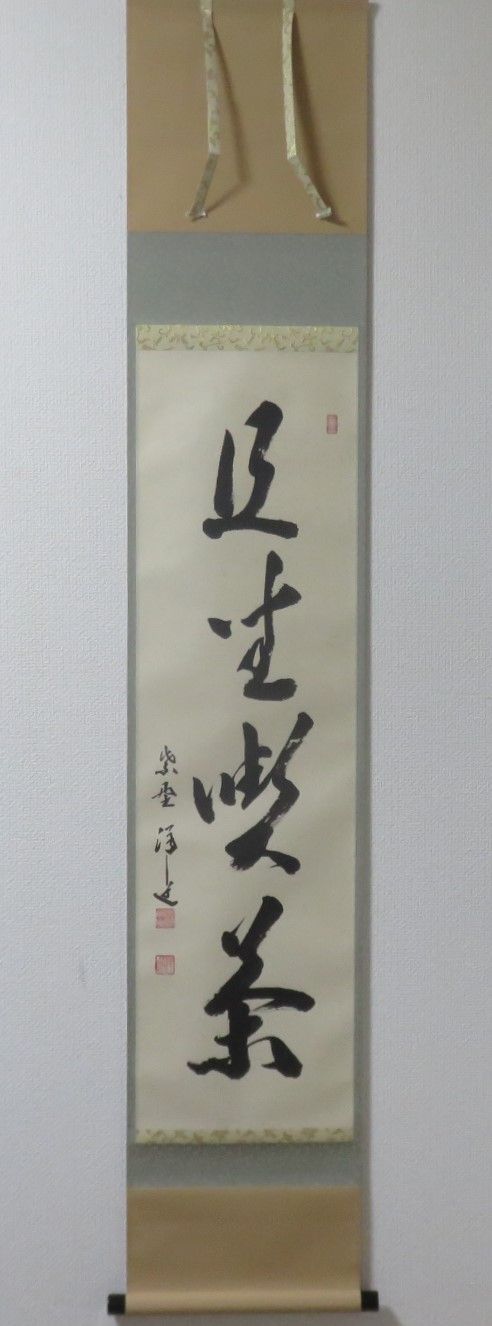 且坐喫茶
紫野